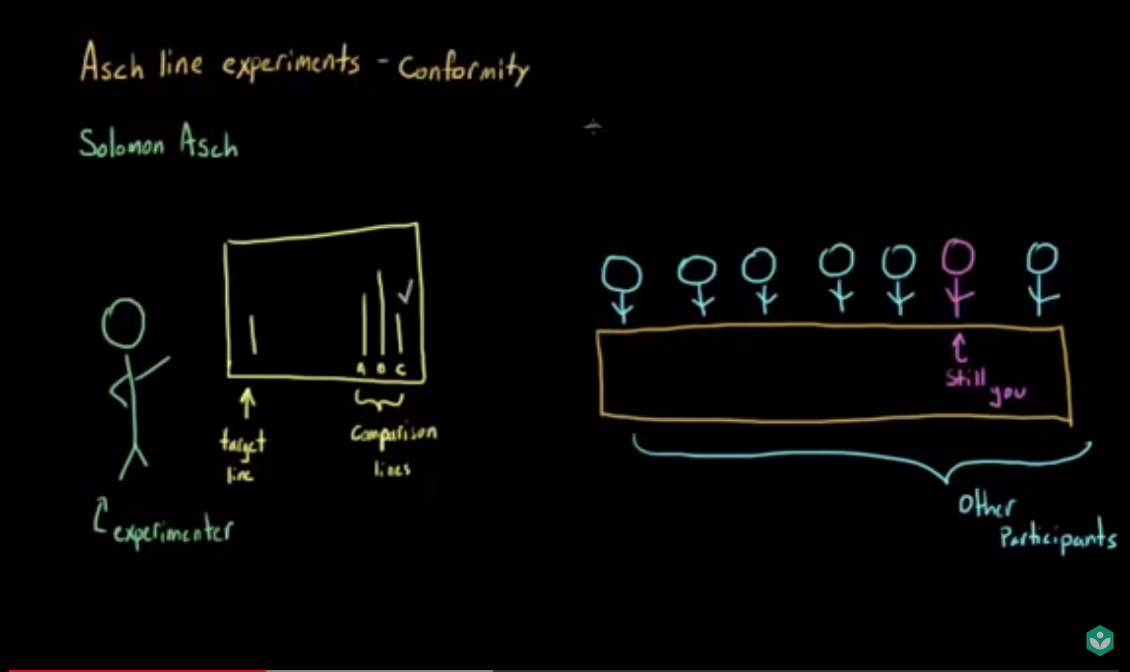 Asch line experiments - Conformity
Solomon Asch
A B C
target
line
Comparison
lines
experimenter
Still
you
Other
Participants